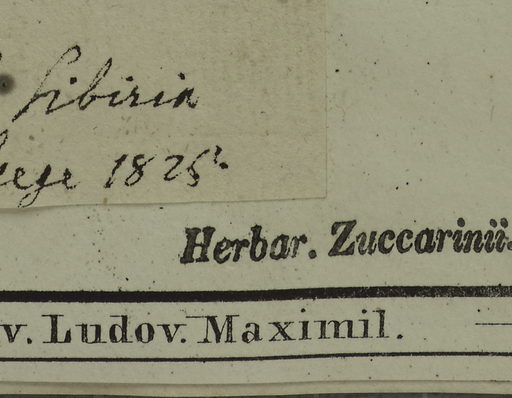 Sibiria
1825.
Herbar. Zuccarinii.
v. Ludov. Maximil.